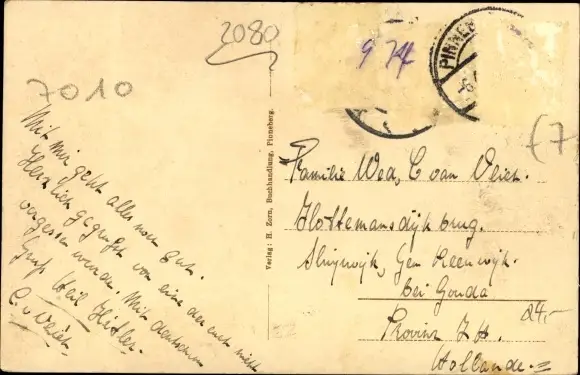 2080
7010
9 7
PINNE
(7
Mit mir geht alles noch gut.
Herzlich gegrüßt von eine der euch nicht
vergessen werden. Mit deutschem
Gruß Heil Hitler.
C. v Veick
Verlag: H. Zorn, Buchhandlung, Pinneberg.
Familie Wed. C van Veick.
Hottemansdijk brug.
Sluipwijk, Gem Reeuwijk.
bei Gouda
24,-
Provinz Z. H.
Hollande.=